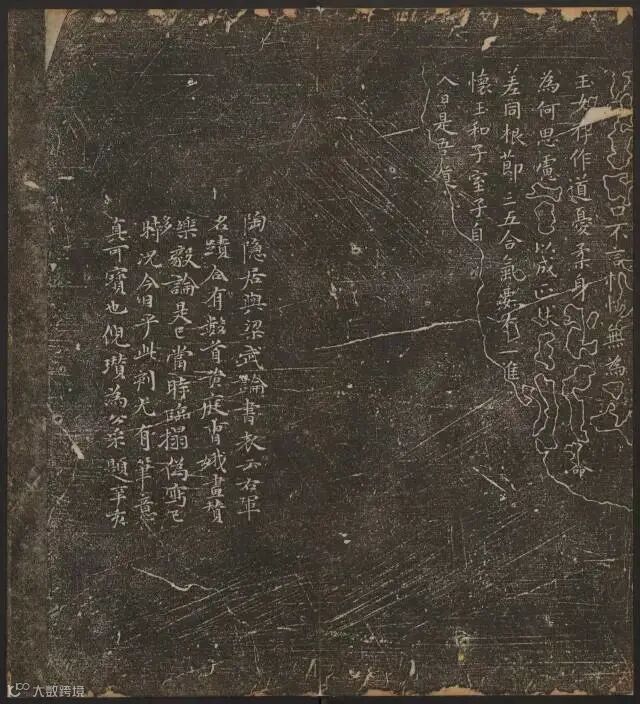 口不言 無為
作道憂柔身 命
為何思慮 以成
差同根節二五合氣要有一進
懷玉和子室子自
八日是吾
陶隱居與梁武論書表云右軍
名蹟合有數首黃庭曹娥畫贊
樂毅論是已當時臨搨偽寫已
夥況今日乎此刻尤有筆意
真可寶也倪瓚為公采題
大数跨境